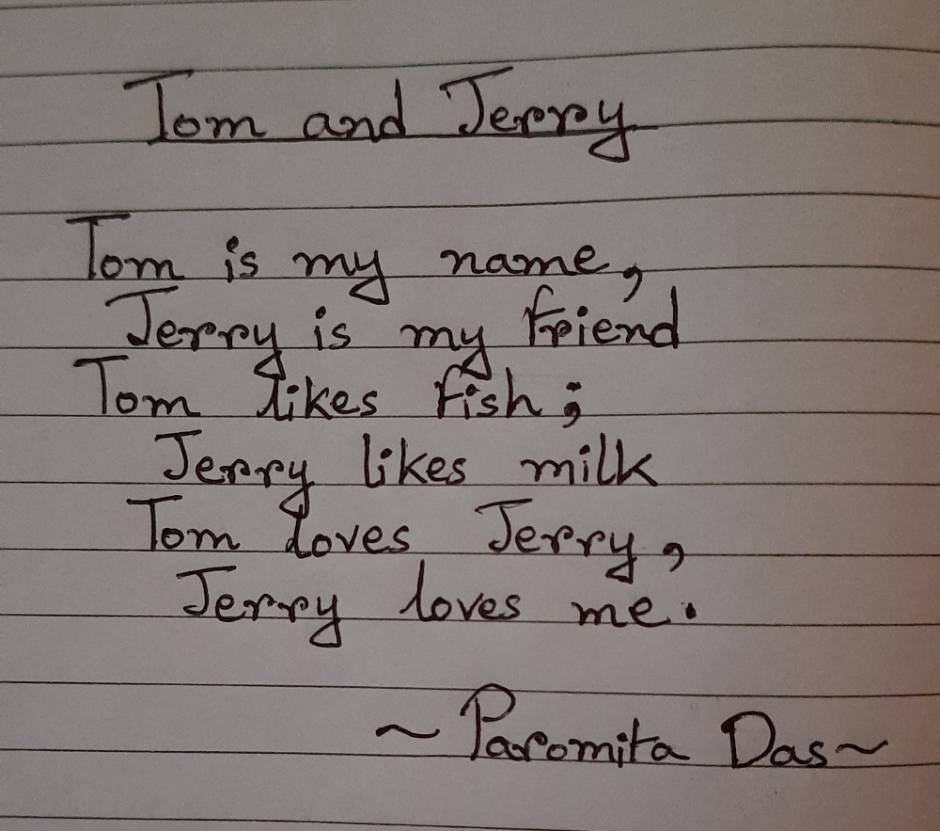 Tom and Jerry
Tom is my name,
Jerry is my friend
Tom likes fish;
Jerry likes milk
Tom loves Jerry,
Jerry loves me.
~Paromita Das~